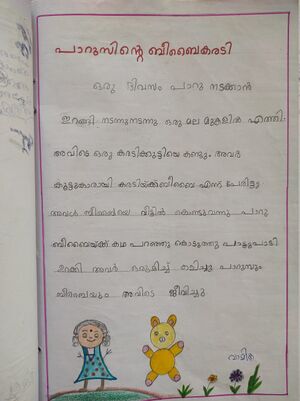 പാറുസിന്റെ ബീബൈകരടി
ഒരു ദിവസം പാറു നടക്കാൻ
ഇറങ്ങി നടന്നുനടന്നു ഒരു മല മുകളിൽ എത്തി.
അവിടെ ഒരു കരടിക്കുട്ടിയെ കണ്ടു. അവർ
കൂട്ടുകാരായി കരടിയ്ക്ക് ബീബൈ എന്ന് പേരിട്ടു
അവൾ ബീബൈയെ വീട്ടിൽ കൊണ്ടുവന്നു പാറു
ബീബൈയ്ക്ക് കഥ പറഞ്ഞു കൊടുത്തു പാട്ടുപാടി
ഉറക്കി അവർ ഒരുമിച്ച് കളിച്ചു പാറുസും
ബീബൈയും അവിടെ ജീവിച്ചു